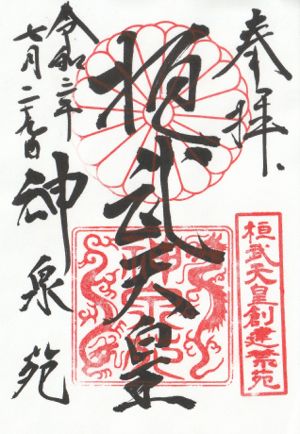 奉拝
桓武天皇創建禁苑
桓武天皇
令和三年
七月二十九日
神泉苑